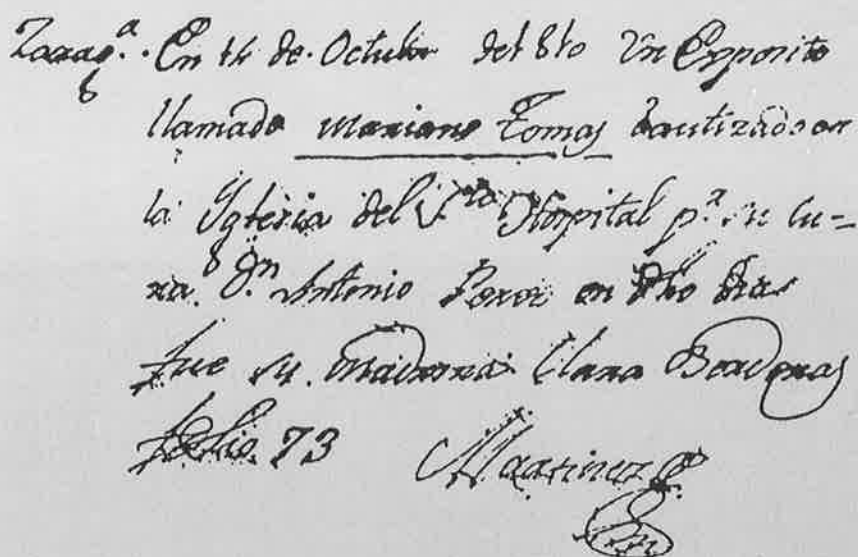 Zarag.ª En 14 de Octubre del 810 Un Exposito
llamado Mariano Tomas bautizado en
la Yglesia del Sto Hospital p.r su Cu-
ra D.n Antonio Perez en dho dia
fue su Madrina Clara Bardenas
folio 73 Martinez